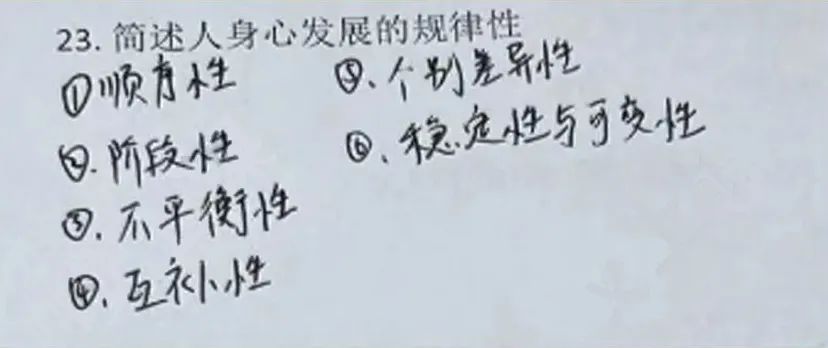 23. 简述人身心发展的规律性
①顺序性
②.阶段性
③.不平衡性
④.互补性
⑤.个别差异性
⑥.稳定性与可变性